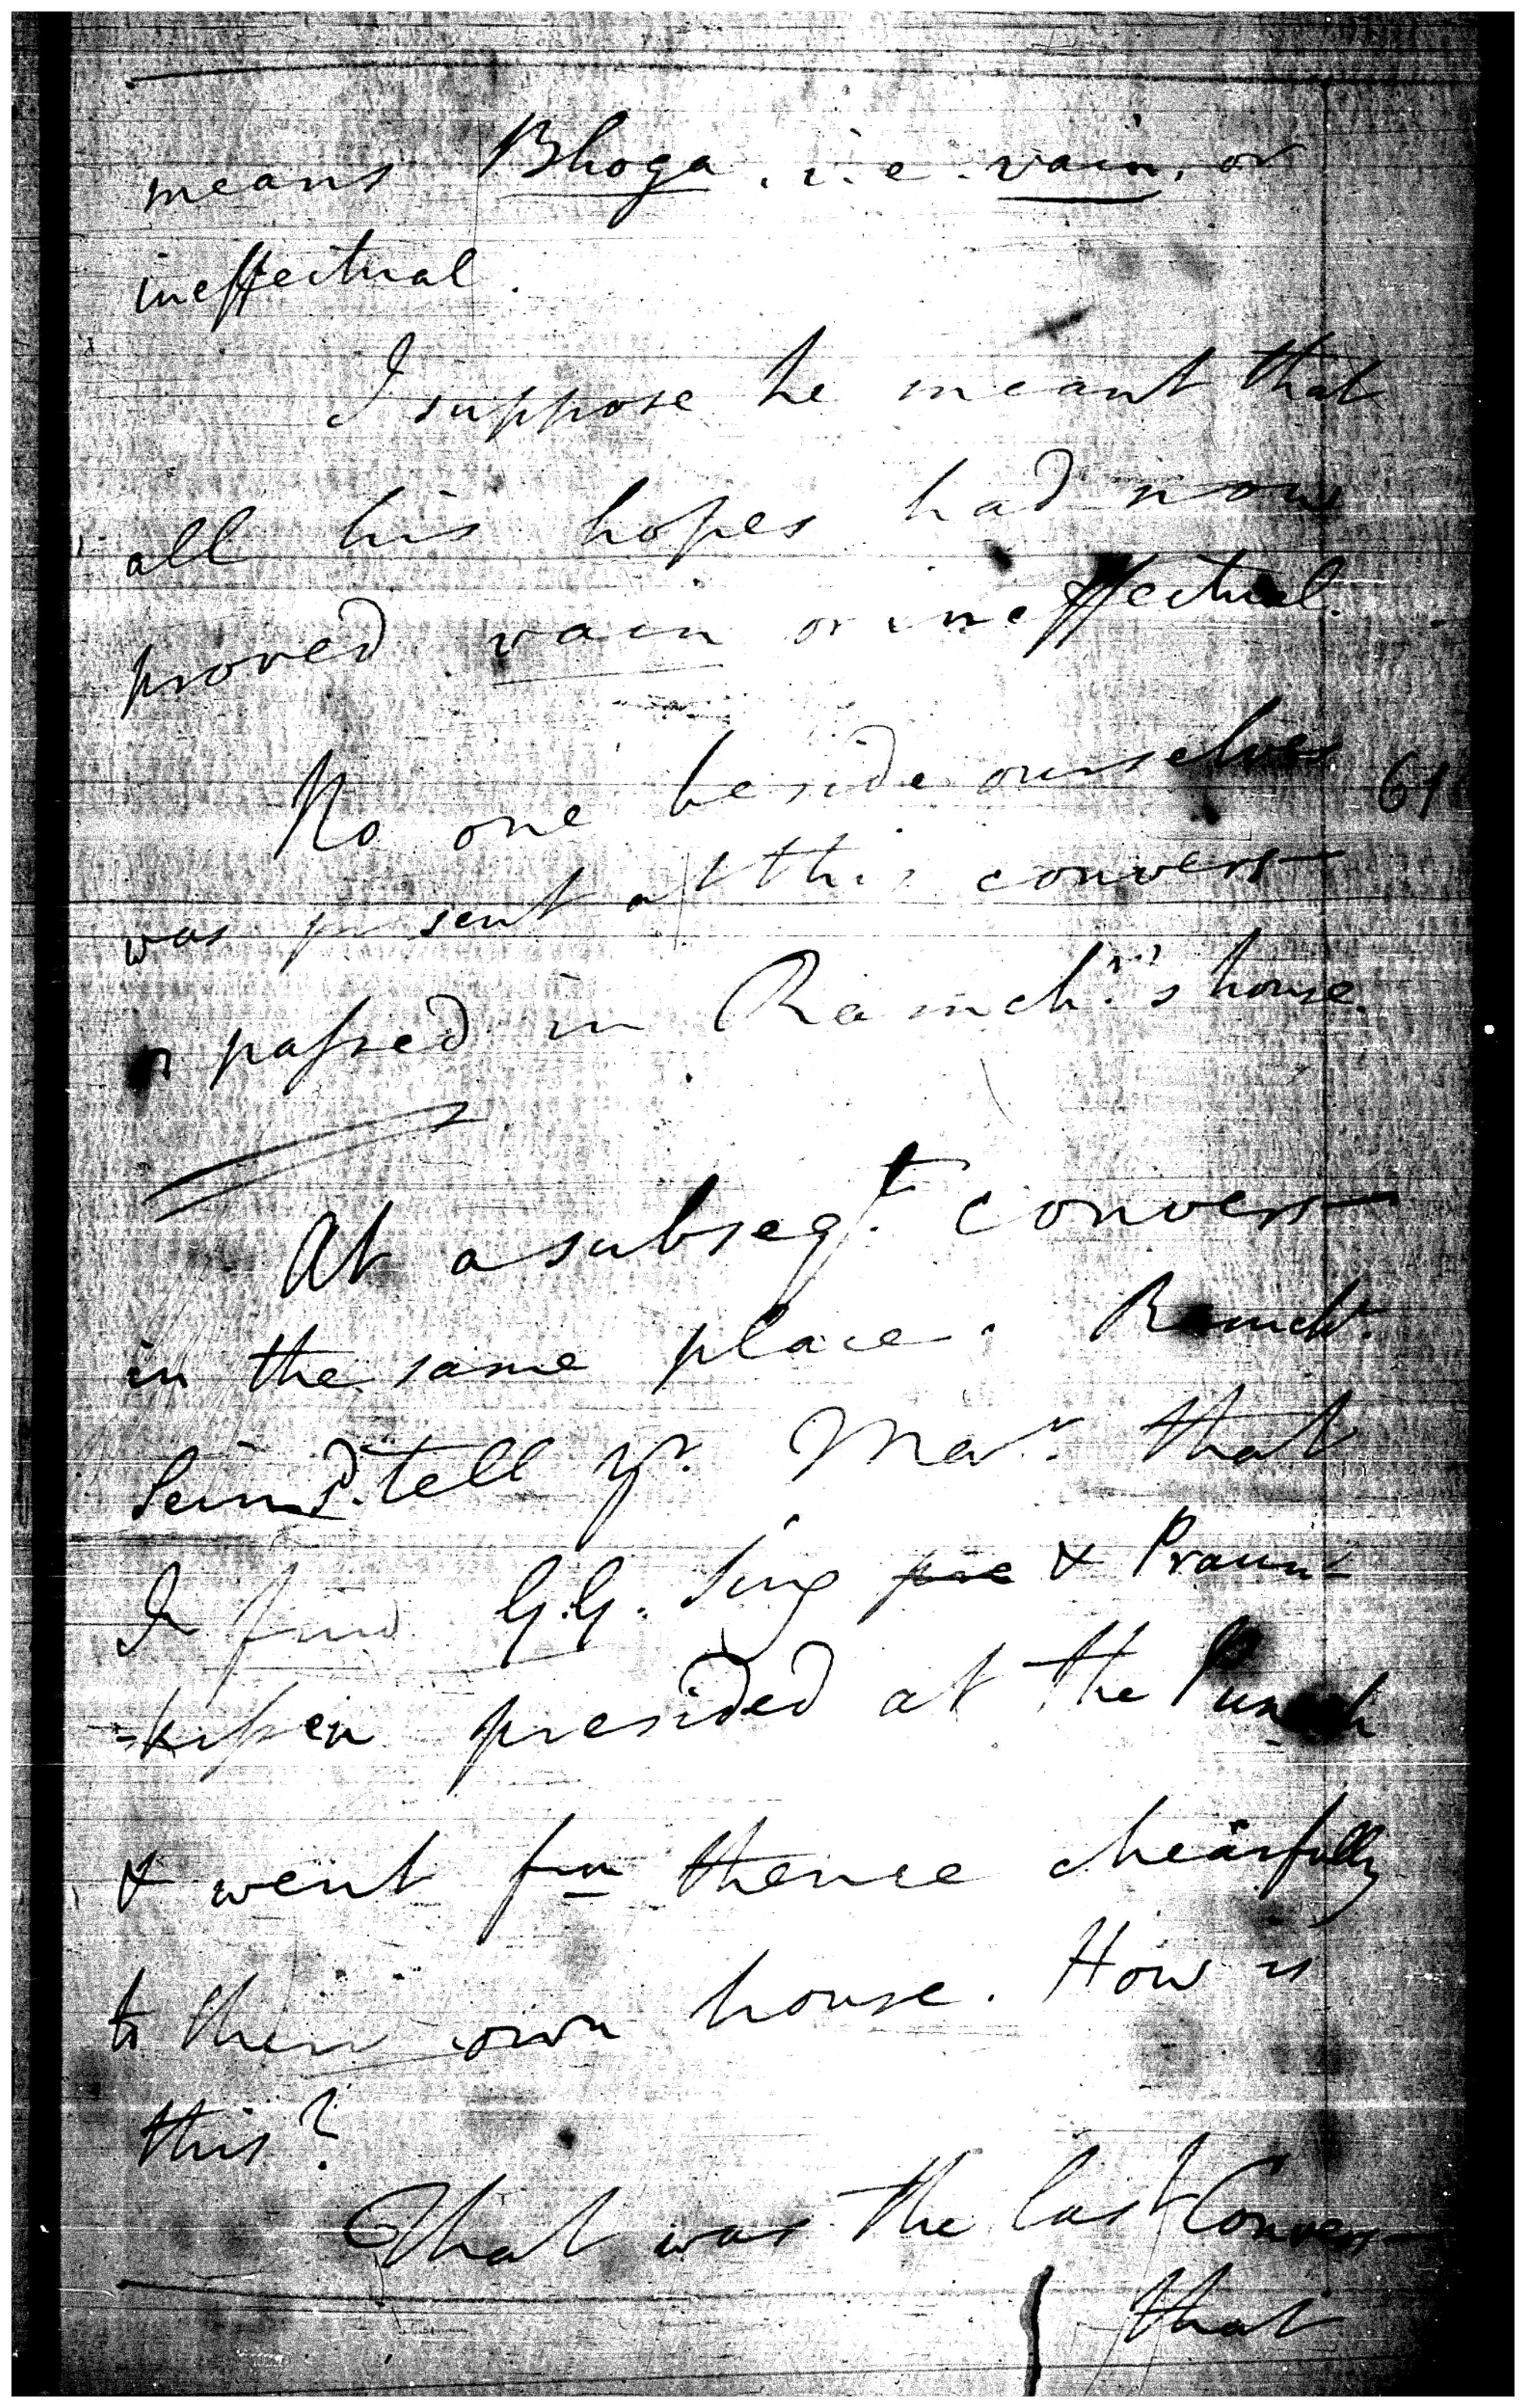 means Bhoga. i.e. vain, or
ineffectual.
I suppose he meant that
all his hopes had now
proved vain or ineffectual.
No one beside ourselves 61
was present at this convers
passed in Ramch:'s house.
At a subseqt. convers
in the same place. Ramch.
Sein sd. tell yr. Mar. that
I find G.G. Sing & Praun-
-kissen presided at the Punch
& went frm thence chearfully
to their own house. How is
this?
That was the last Convers
that